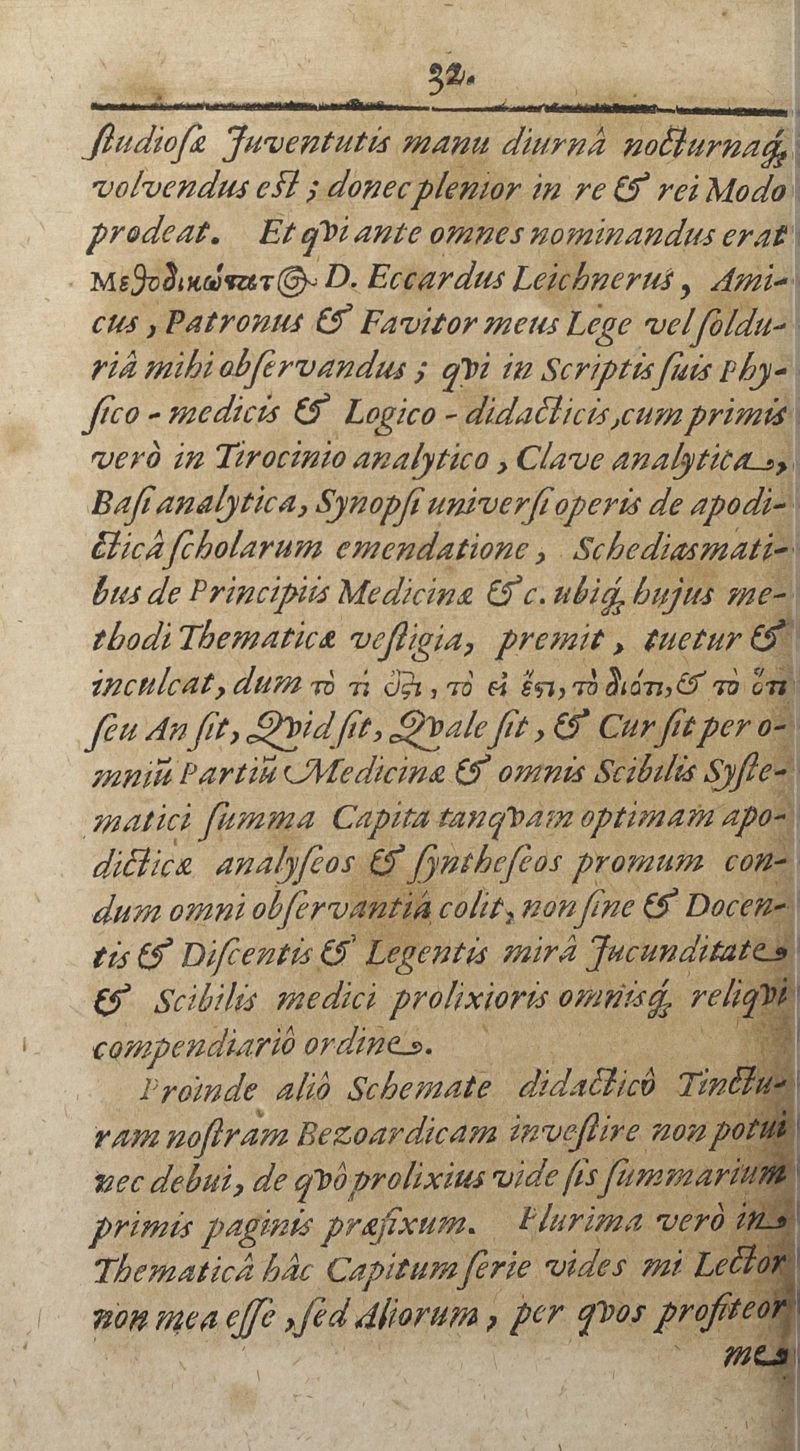 32.
ſtudioſæ Juventutis manu diurnâ nocturnaq́;
volvendus eſt; donec plenior in re & rei Modo
prodeat. Et qvi ante omnes nominandus erat
Μεθοδικώτατ@ D. Eccardus Leichnerus, Ami-
cus, Patronus & Favitor meus Lege vel ſoldu-
riâ mihi obſervandus; qvi in Scriptis ſuis Phy-
ſico-medicis & Logico-didacticis, cum primis
verò in Tirocinio analytico, Clave analytica,
Baſi analytica, Synopſi univerſi operis de apodi-
cticâ ſcholarum emendatione, Schediasmati-
bus de Principiis Medicinæ &c. ubiq́; hujus me-
thodi Thematicæ veſtigia, premit, tuetur &
inculcat, dum τὸ τί ὅζι, τὸ εἰ ἔςι, τὸ διότι, & τὸ ὅτι
ſeu An ſit, Qvid ſit, Qvale ſit, & Cur ſit per o-
mniũ Partiũ Medicinæ & omnis Scibilis Syſte-
matici ſumma Capita tanqvam optimam apo-
dicticæ analyſeos & ſyntheſeos promum con-
dum omni obſervantiâ colit, non ſine & Docen-
tis & Diſcentis & Legentis mirâ Jucunditate
& Scibilis medici prolixioris omnisq́; reliqvi
compendiariô ordine.
Proinde aliô Schemate didacticô Tinctu-
ram noſtram Bezoardicam inveſtire non potui
nec debui, de qvô prolixius vide ſis ſummarium
primis paginis præfixum. Plurima verò in
Thematicâ hâc Capitum ſerie vides mi Lector
non mea eſſe, ſed Aliorum, per qvos profiteor
me